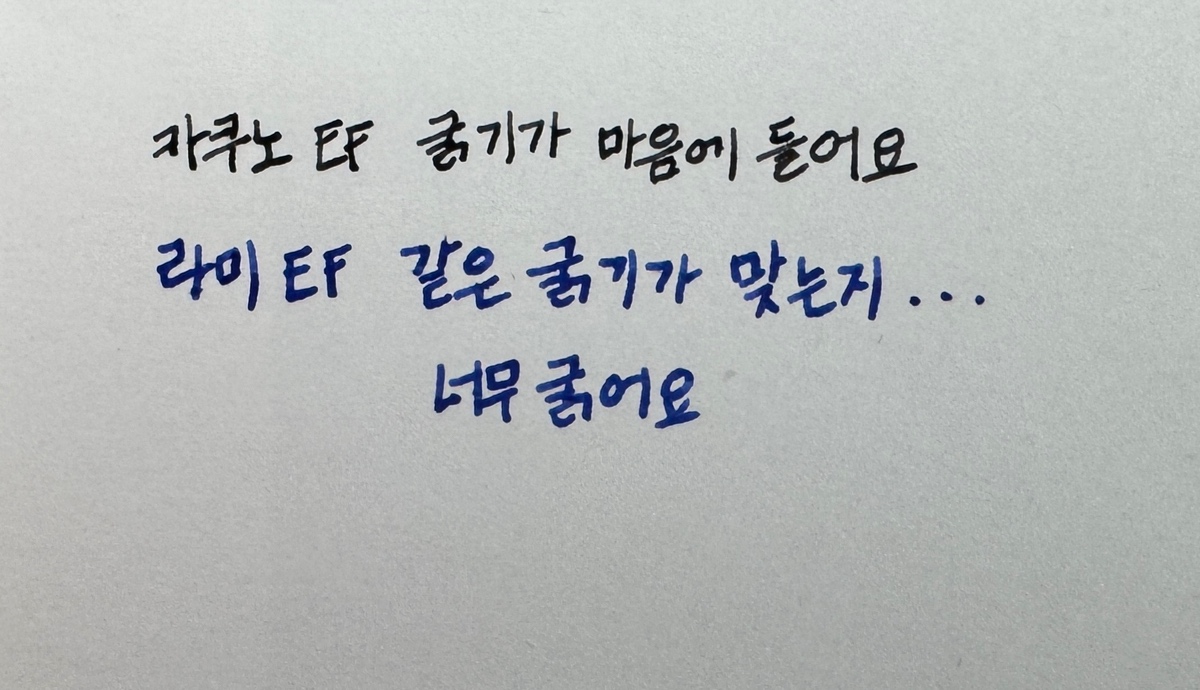 카쿠노 EF 굵기가 마음에 들어요
라미 EF 같은 굵기가 맞는지...
너무 굵어요